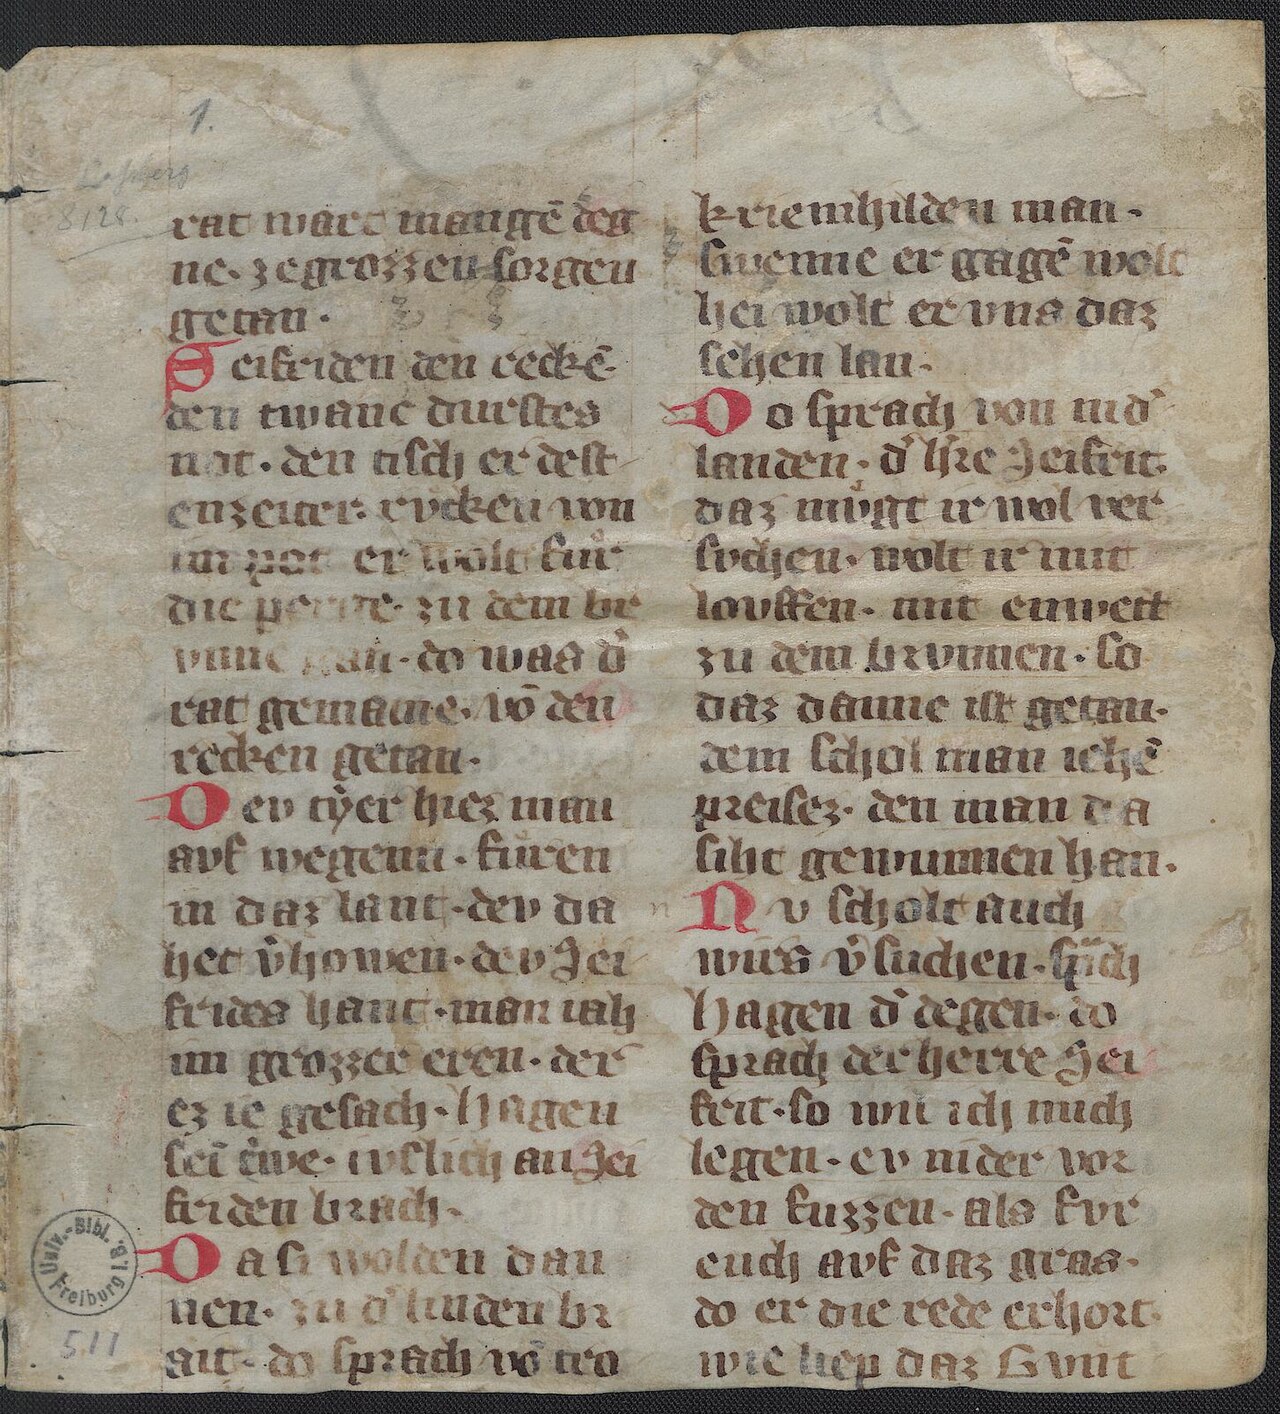 1.
Laßberg
8128.
rat wart mangē deg
ne· ze grozzen sorgen
getan·
Seifriden den reckē·
den twanc durstes
not· den tisch er dest
enzeiter· rvcken von
im pot er wolt fuͤr
die perige· zu dem br
vnne gan· do was d̓
rat gemaine· vō den
recken getan·
Dev tẏer hiez man
avf wegenn· fuͤren
in daz lant· dev da
het v̓howen· dev Sei
frides hant· man iah
im grozzer eren· der
ez ie gesach· Hagen
sei t̓we· ivslich an Sei
friden brach·
Da si wolden dan
nen· zu d̓ linden br
ait· do sprach vō tro
kriemhilden man·
swenne er gagē wolt
hei wolt er vns daz
sehen lan·
Do sprach von nid̓
landen· d̓ h̓re Seifrit·
daz mvͤgt ir wol ver
svchen· wolt ir mit
lovffen· mit enwett
zu dem brvnnen· so
daz danne ist getan·
dem schol man iehē
preisez· den man da
siht gewunnen han·
Nv scholt auch
wirs v̓suchen· sprach
Hagen d̓ degen· do
sprach der herre Sei
frit· so wil ich mich
legen· ev nider vor
den fuzzen· als fvr
euch avf daz gras·
do er die rede erhort·
wie liep daz Gvnt
Univ.-Bibl. Freiburg i. B.
511